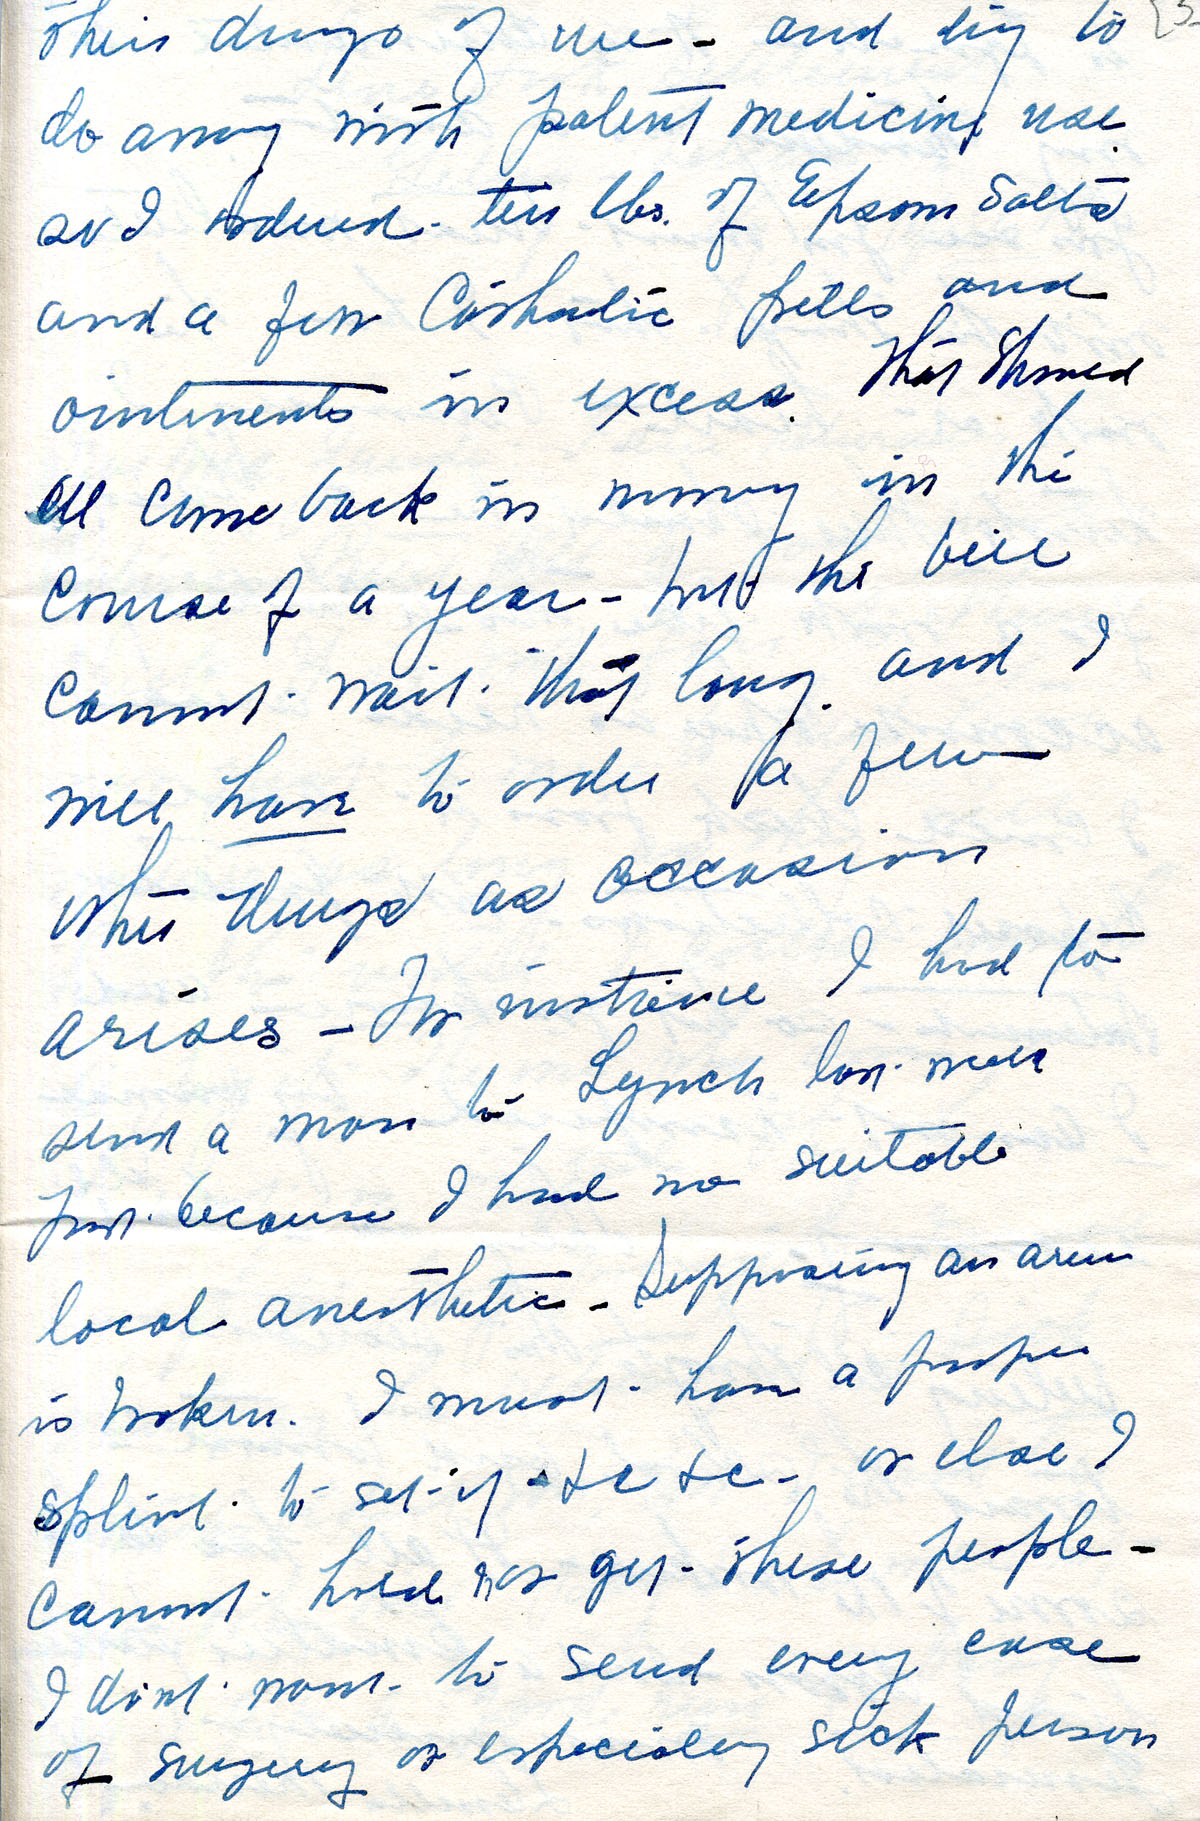 their drugs of me - and try to
do away with patent medicine use
so I ordered ten lbs. of Epsom Salts
and a few Cathartic pills and
ointments in excess. That should
all come back in money in the
course of a year - but the bill
cannot wait that long. and I
will have to order a few
other drugs as occasion
arises - For instance I had to
send a man to Lynch last week
Just because I had no suitable
local anesthetic - Supposing an arm
is broken. I must have a proper
splint to set it &c &c - or else I
cannot hold nor get these people -
I dont want to send every case
of surgery or especialey sick person